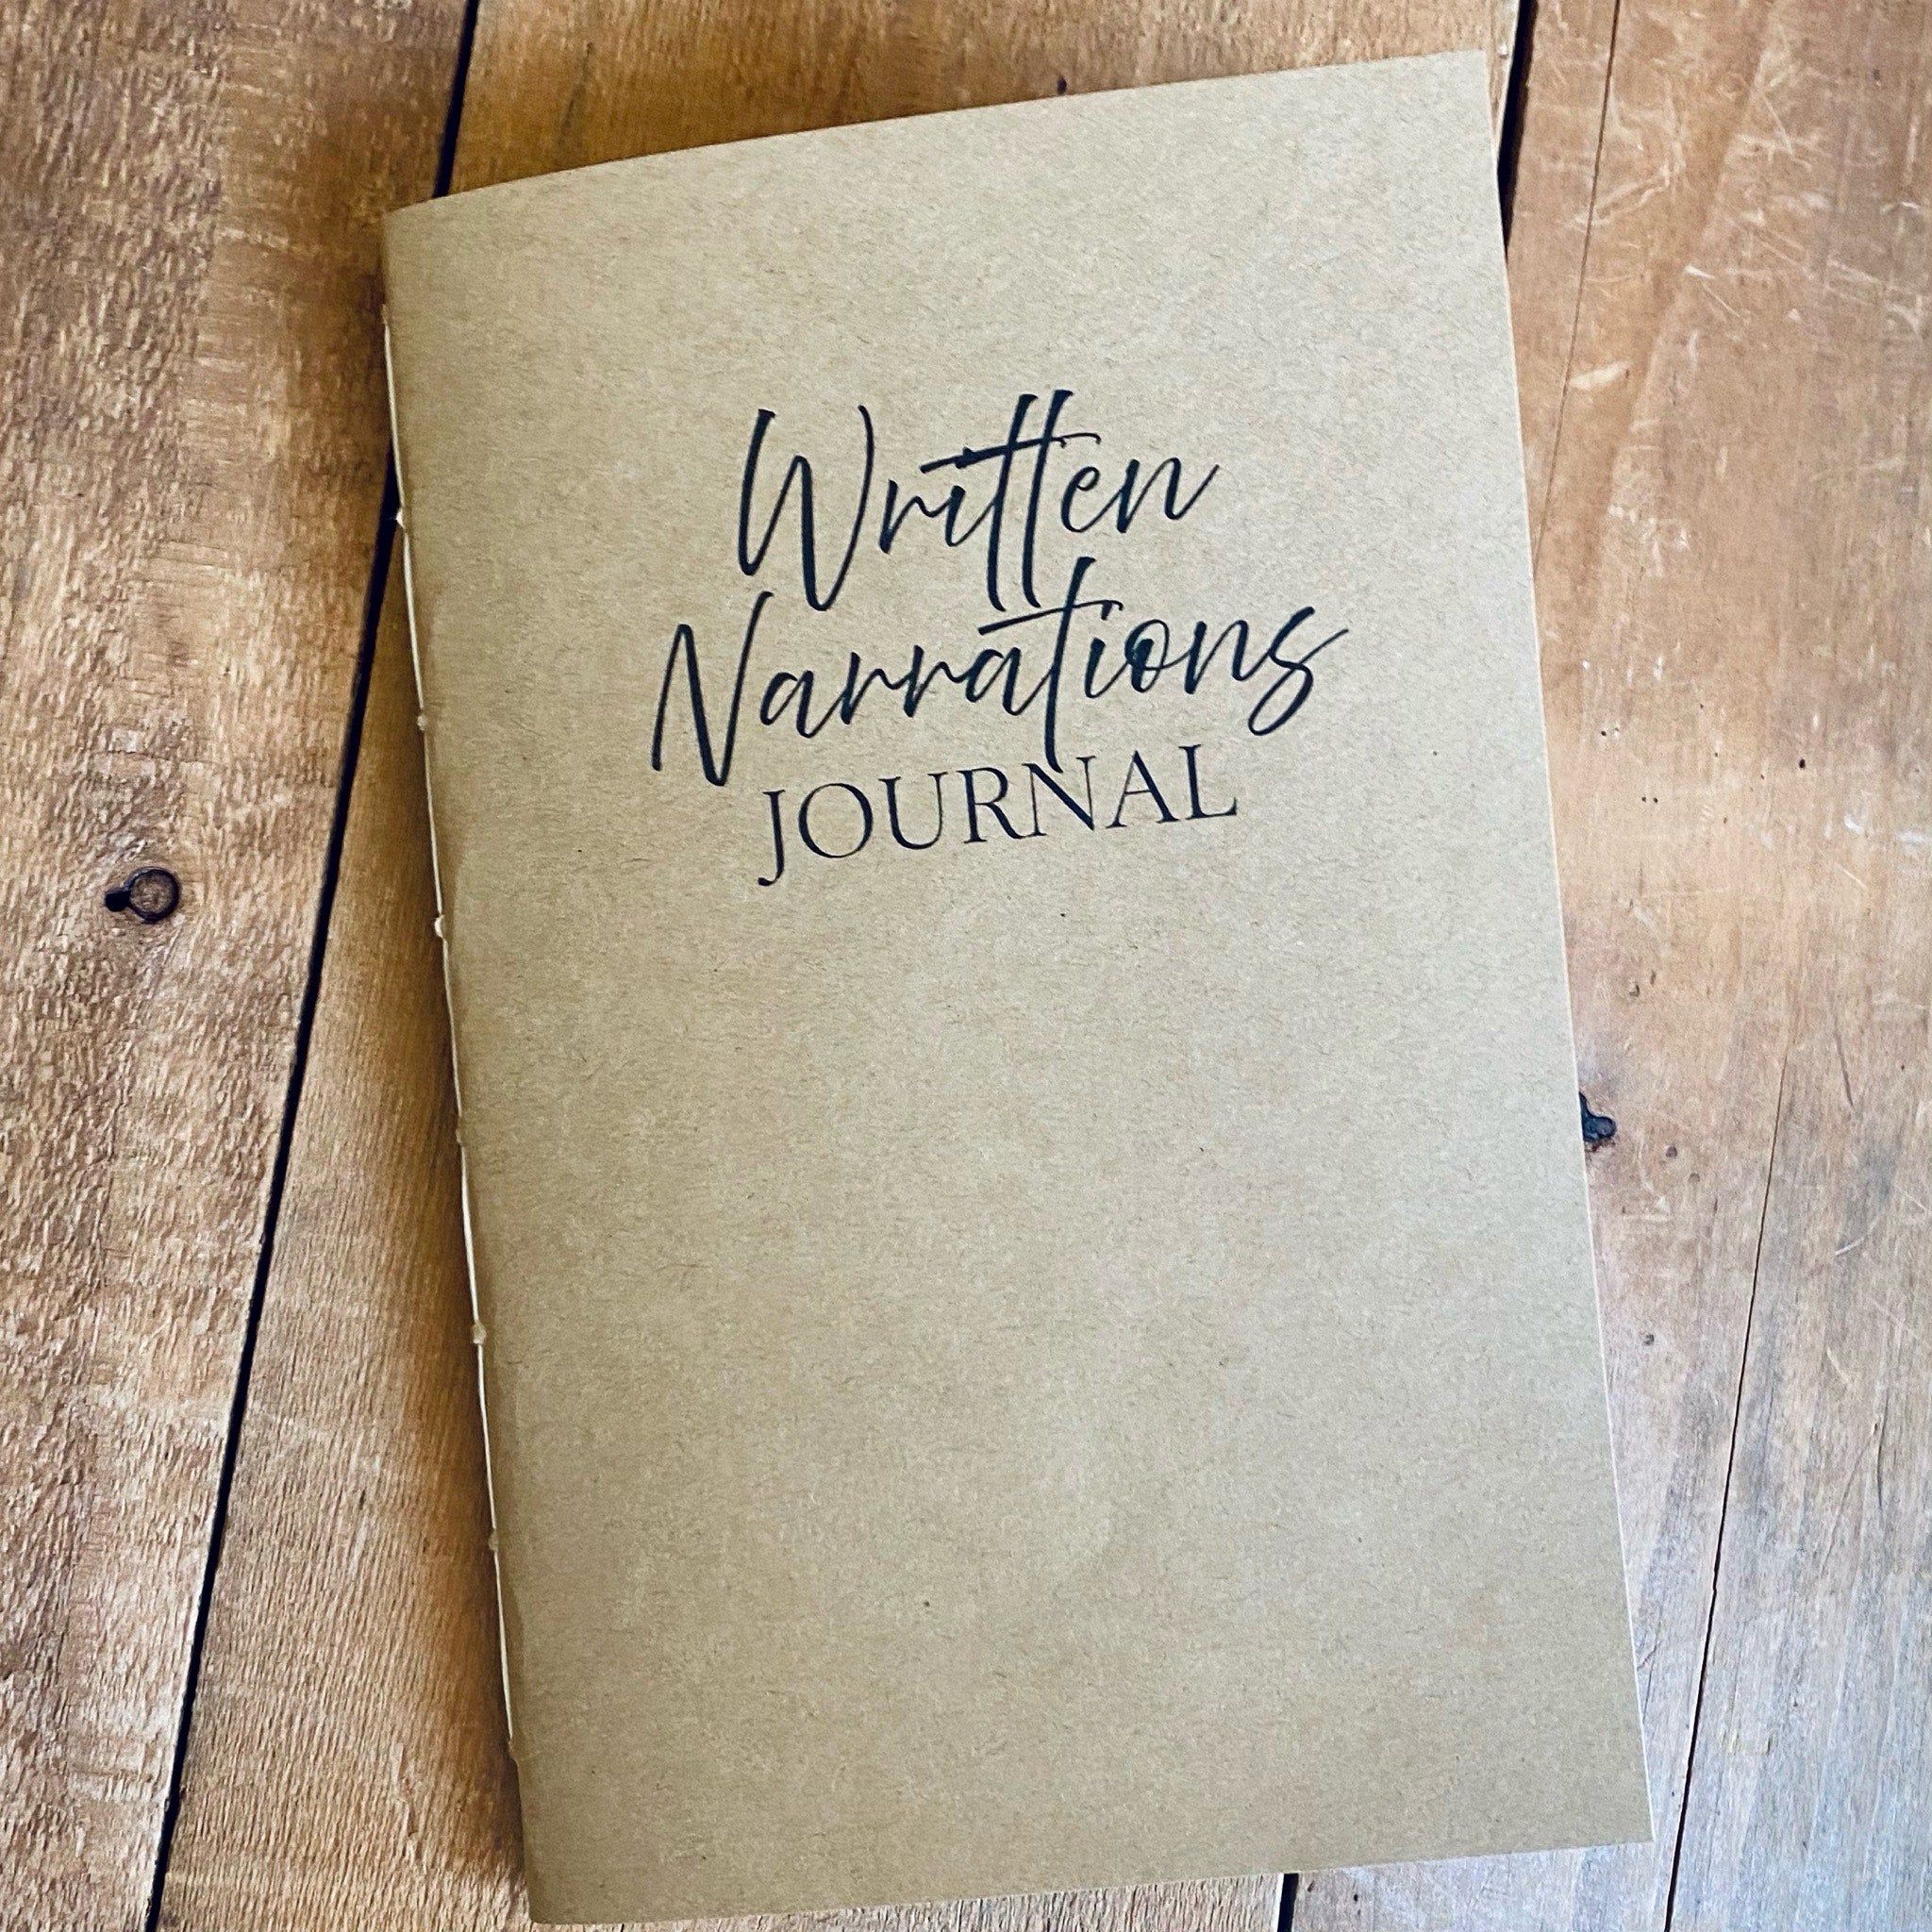 Written
Narrations
JOURNAL